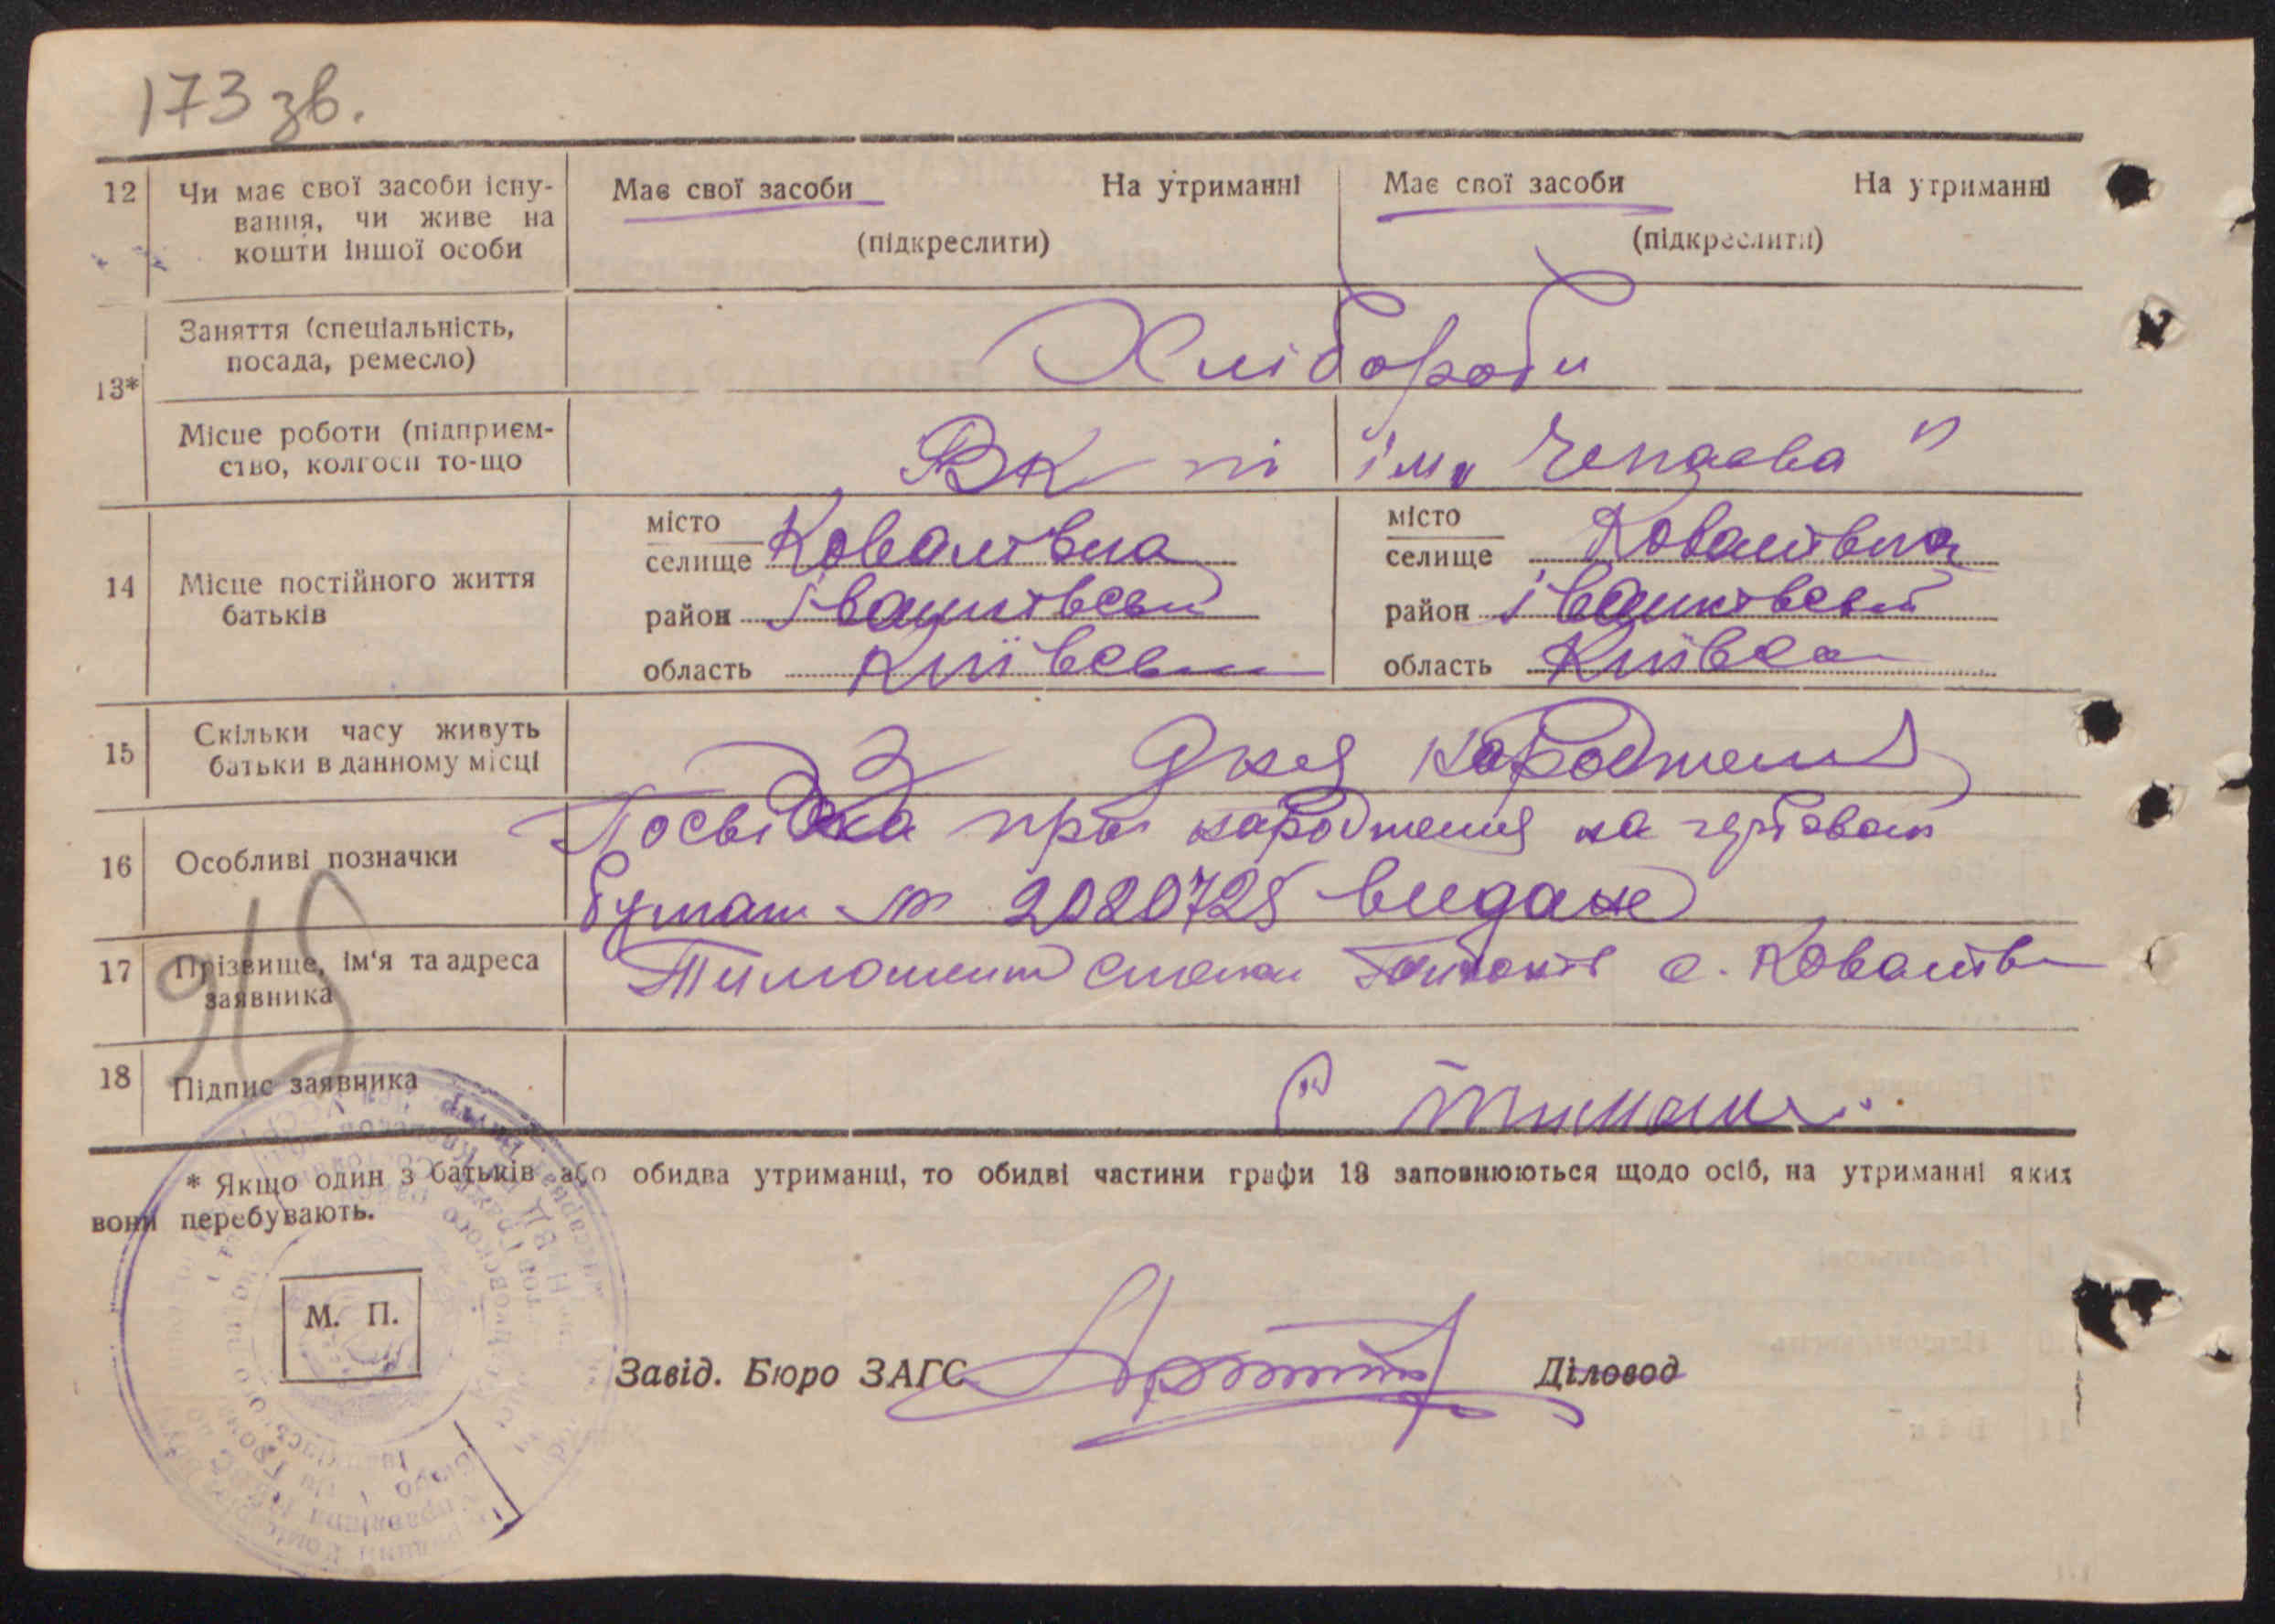 173 зв.
12 Чи має свої засоби існу-
вання, чи живе на
кошти іншої особи
Має свої засоби На утриманні
(підкреслити)
Має свої засоби На утриманні
(підкреслити)
13*
Заняття (спеціальність,
посада, ремесло)
Хлібороби
Місце роботи (підприєм-
ство, колгосп то-що
ім. Чепаєва "
14 Місце постійного життя
батьків
місто
селище Ковалівка
район Іванківськи
область Київськ
місто
селище Ковалівка
район Іванківськи
область Київськ
15 Скільки часу живуть
батьки в данному місці
З Дня народження
16 Особливі позначки
Посвідка про народження на гербовом
бумаги № 2080725 видане
915
17 Прізвище, ім'я та адреса
заявника
Тимошенко с. Ковалівк
18 Підпис заявника
Тимош
* Якщо один з батьків або обидва утриманці, то обидві частини графи 13 заповнюються щодо осіб, на утриманні яких
вони перебувають.
М. П.
Завід. Бюро ЗАГС
Діловод